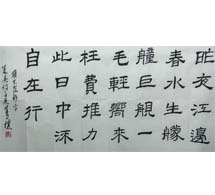 昨夜江邊
春水生艨
艟巨舰一
毛輕嚮來
枉費推力
此日中流
自在行